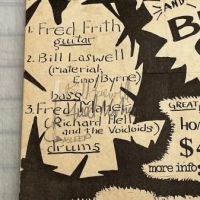 AND
B
1. Fred Frith
guitar
2. Bill Laswell
(Material,
Eno/Byrne)
bass
3. Fred Maher
(Richard Hell
and the Voidoids)
drums
GREAT
ho
$4
more info